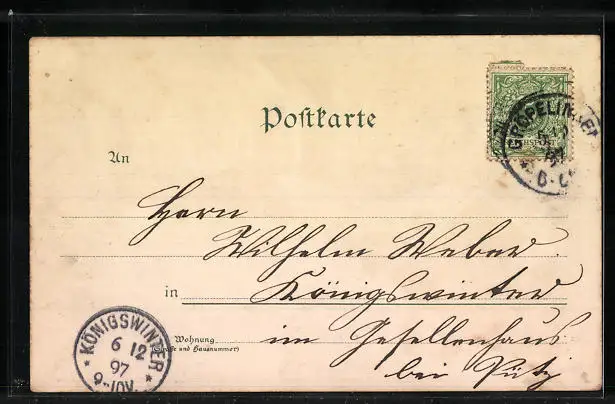 Postkarte
GRÖPELINGEN
REICHSPOST
An
Herrn
Wilhelm Weber.
in Königswinter
Wohnung
(Straße und Hausnummer)
im Gesellenhaus
bei Pütz
* KÖNIGSWINTER *
6 12
97
9-10V.